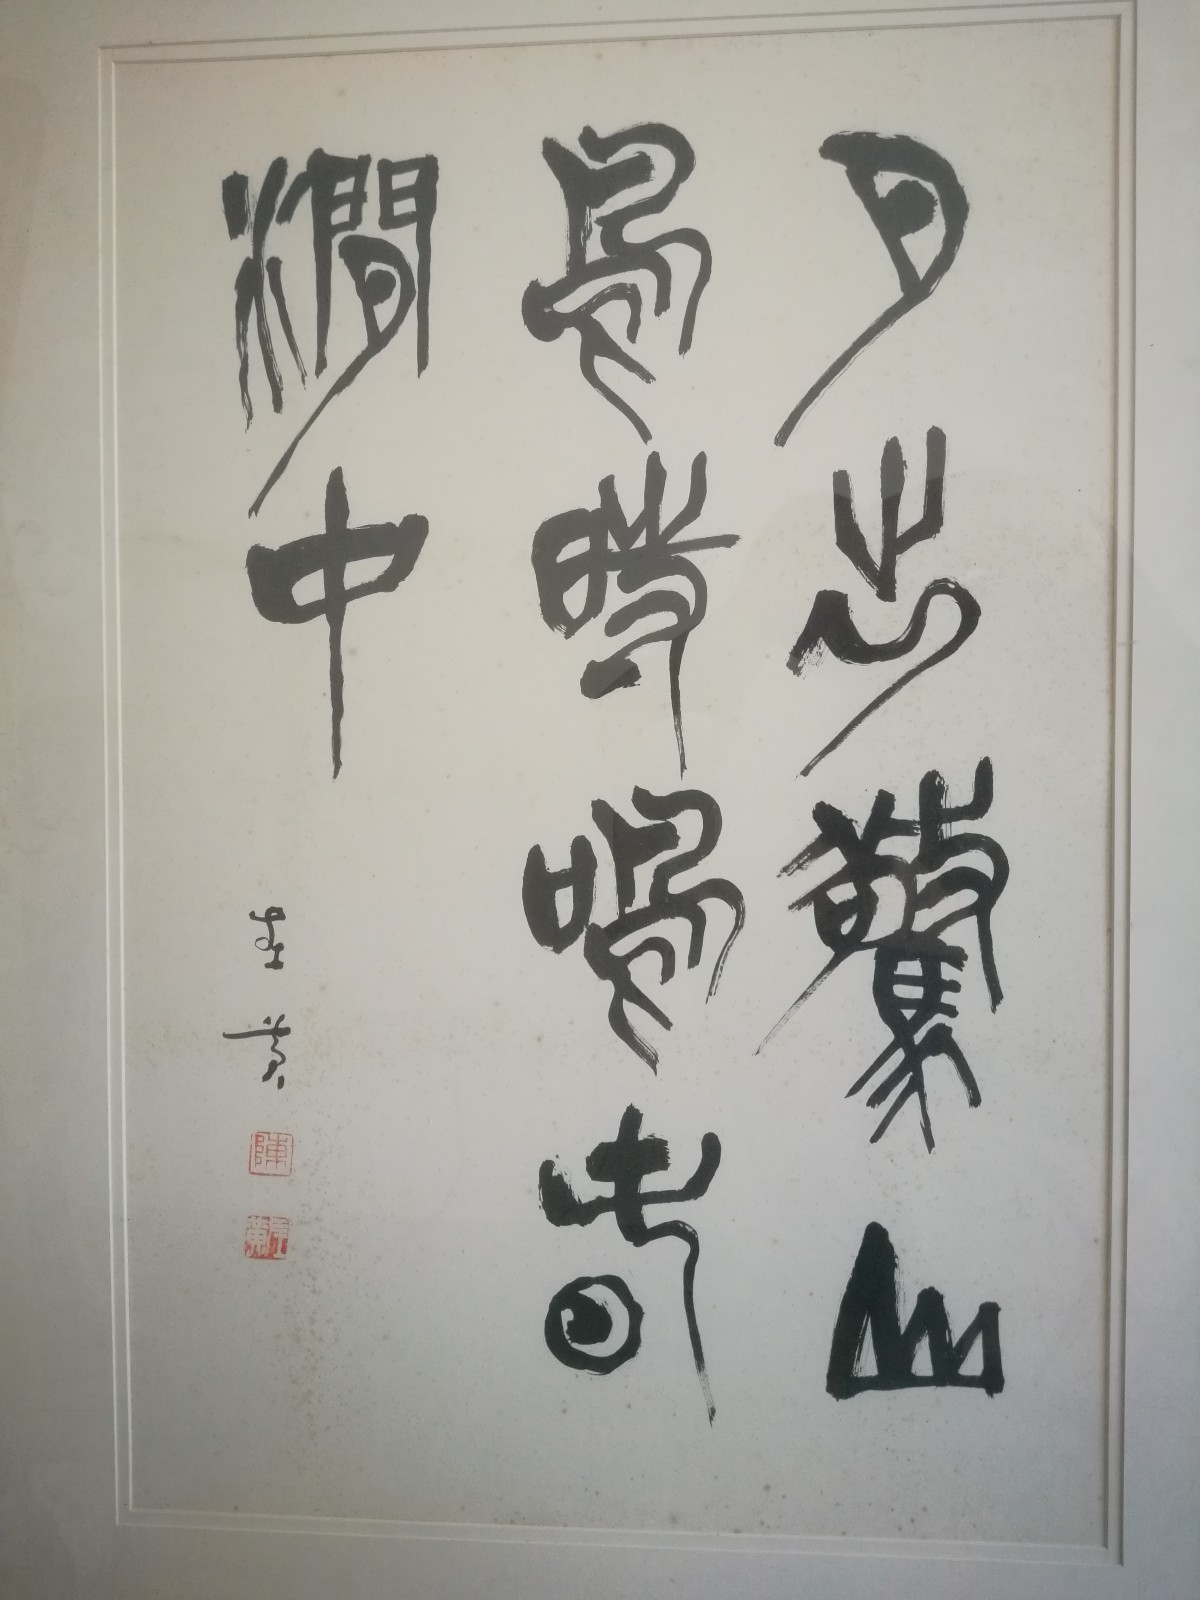 月出驚山
鳥時鳴春
澗中
陳